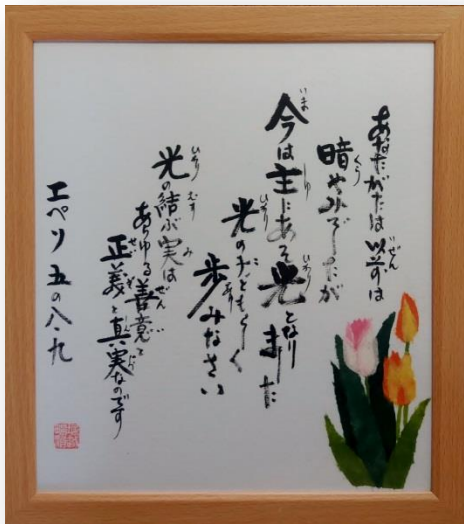 あなたがたは以前は
暗やみでしたが
今は主にある光となりました
光の子どもらしく
歩みなさい
光の結ぶ実は
あらゆる善意と
正義と真実なのです
エペソ 五の八・九